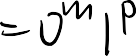 =0^m 1^p